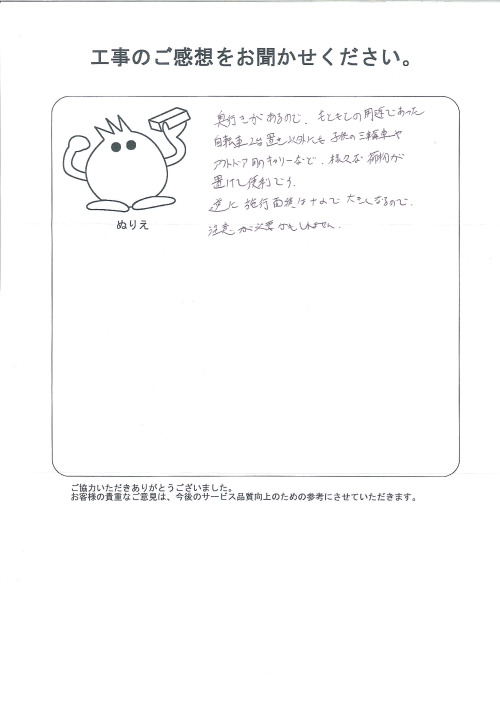 工事のご感想をお聞かせください。
奥行きがあるので、もともとの用途であった
自転車2台置き以外にも子供の三輪車や
アウトドア用のキャリーなど、様々な荷物が
置けて便利です。
逆に施行面積は その分 大きくなるので、
注意が必要かもしれません。
ぬりえ
ご協力いただきありがとうございました。
お客様の貴重なご意見は、今後のサービス品質向上のための参考にさせていただきます。